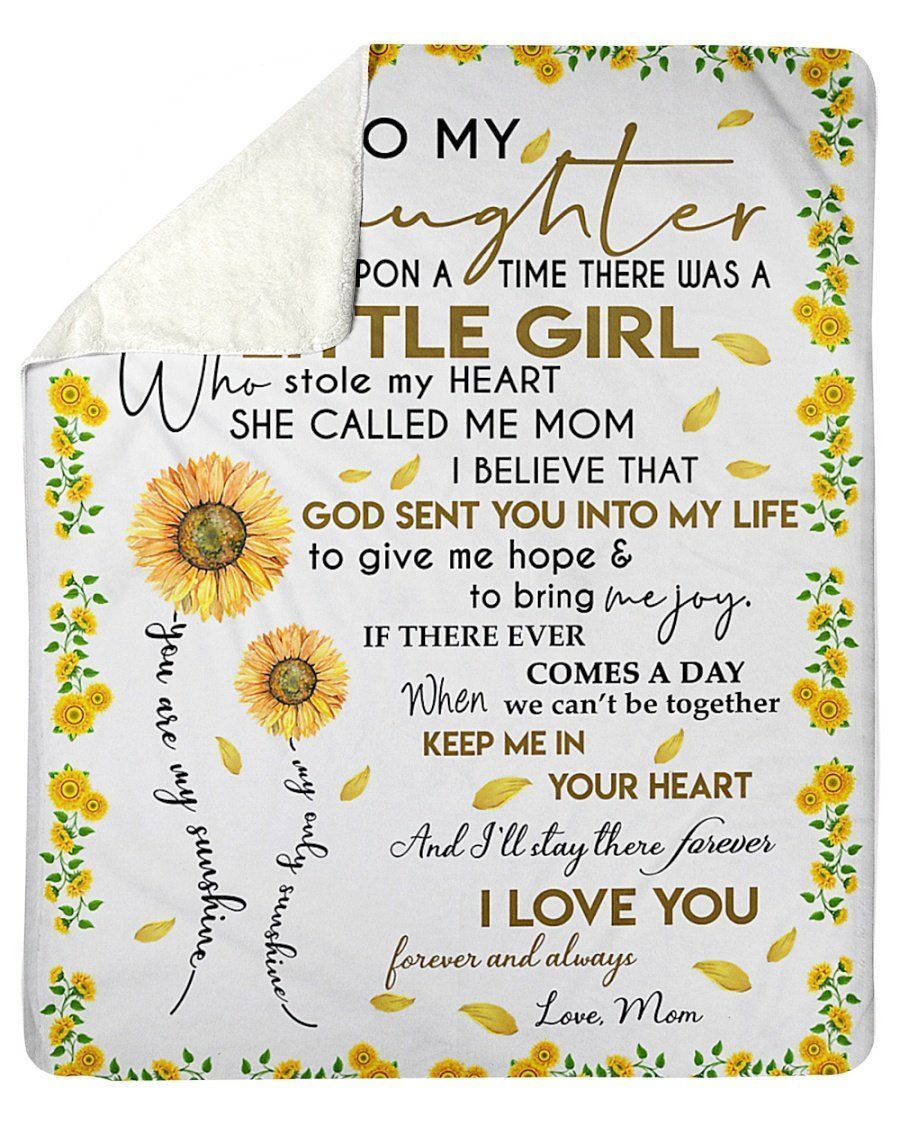 O MY
ughter
PON A TIME THERE WAS A
LITTLE GIRL
Who stole my HEART
SHE CALLED ME MOM
I BELIEVE THAT
GOD SENT YOU INTO MY LIFE
to give me hope &
to bring me joy.
IF THERE EVER
COMES A DAY
When we can't be together
KEEP ME IN
YOUR HEART
And I'll stay there forever
I LOVE YOU
forever and always
Love, Mom
you are my sunshine
my only sunshine